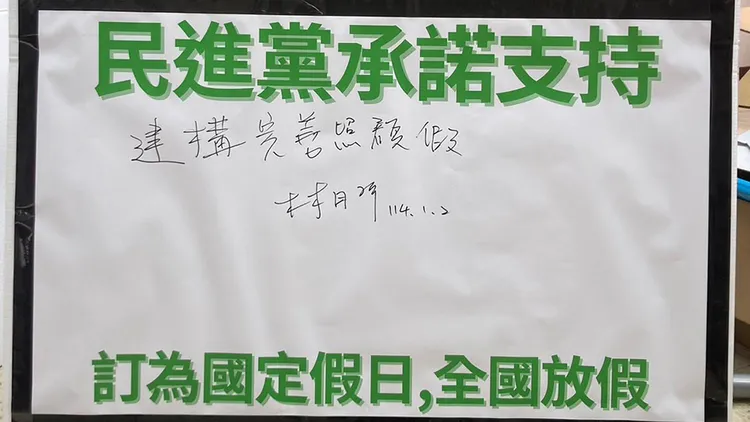 民進黨承諾支持
建構完善照顧假
林月琴 114.1.2
訂為國定假日,全國放假